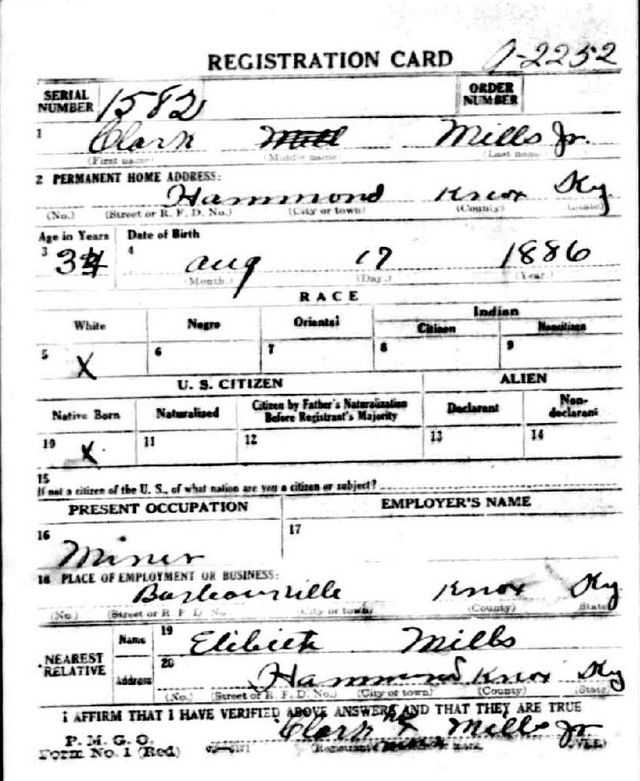 REGISTRATION CARD A-2252
SERIAL NUMBER 1582 ORDER NUMBER
1 Clark Mills Jr.
(First name) (Middle name) (Last name)
2 PERMANENT HOME ADDRESS:
Hammond Knox Ky
(No.) (Street or R. F. D. No.) (City or town) (County) (State)
Age in Years Date of Birth
3 4 Aug 17 1886
(Month.) (Day.) (Year.)
RACE
White Negro Oriental Indian
Citizen Noncitizen
5 X 6 7 8 9
U. S. CITIZEN ALIEN
Native Born Naturalized Citizen by Father's Naturalization Before Registrant's Majority Declarant Non-declarant
10 X 11 12 13 14
15
If not a citizen of the U. S., of what nation are you a citizen or subject?
PRESENT OCCUPATION EMPLOYER'S NAME
16 Miner 17
18 PLACE OF EMPLOYMENT OR BUSINESS:
Barbourville Knox Ky
(No.) (Street or R. F. D. No.) (City or town) (County) (State)
NEAREST RELATIVE Name 19 Mills
Address 20 Hammond Knox Ky
(No.) (Street or R. F. D. No.) (City or town) (County) (State)
I AFFIRM THAT I HAVE VERIFIED ABOVE ANSWERS AND THAT THEY ARE TRUE
P. M. G. O. Clark his X Mills Jr.
Form No. 1 (Red) mark